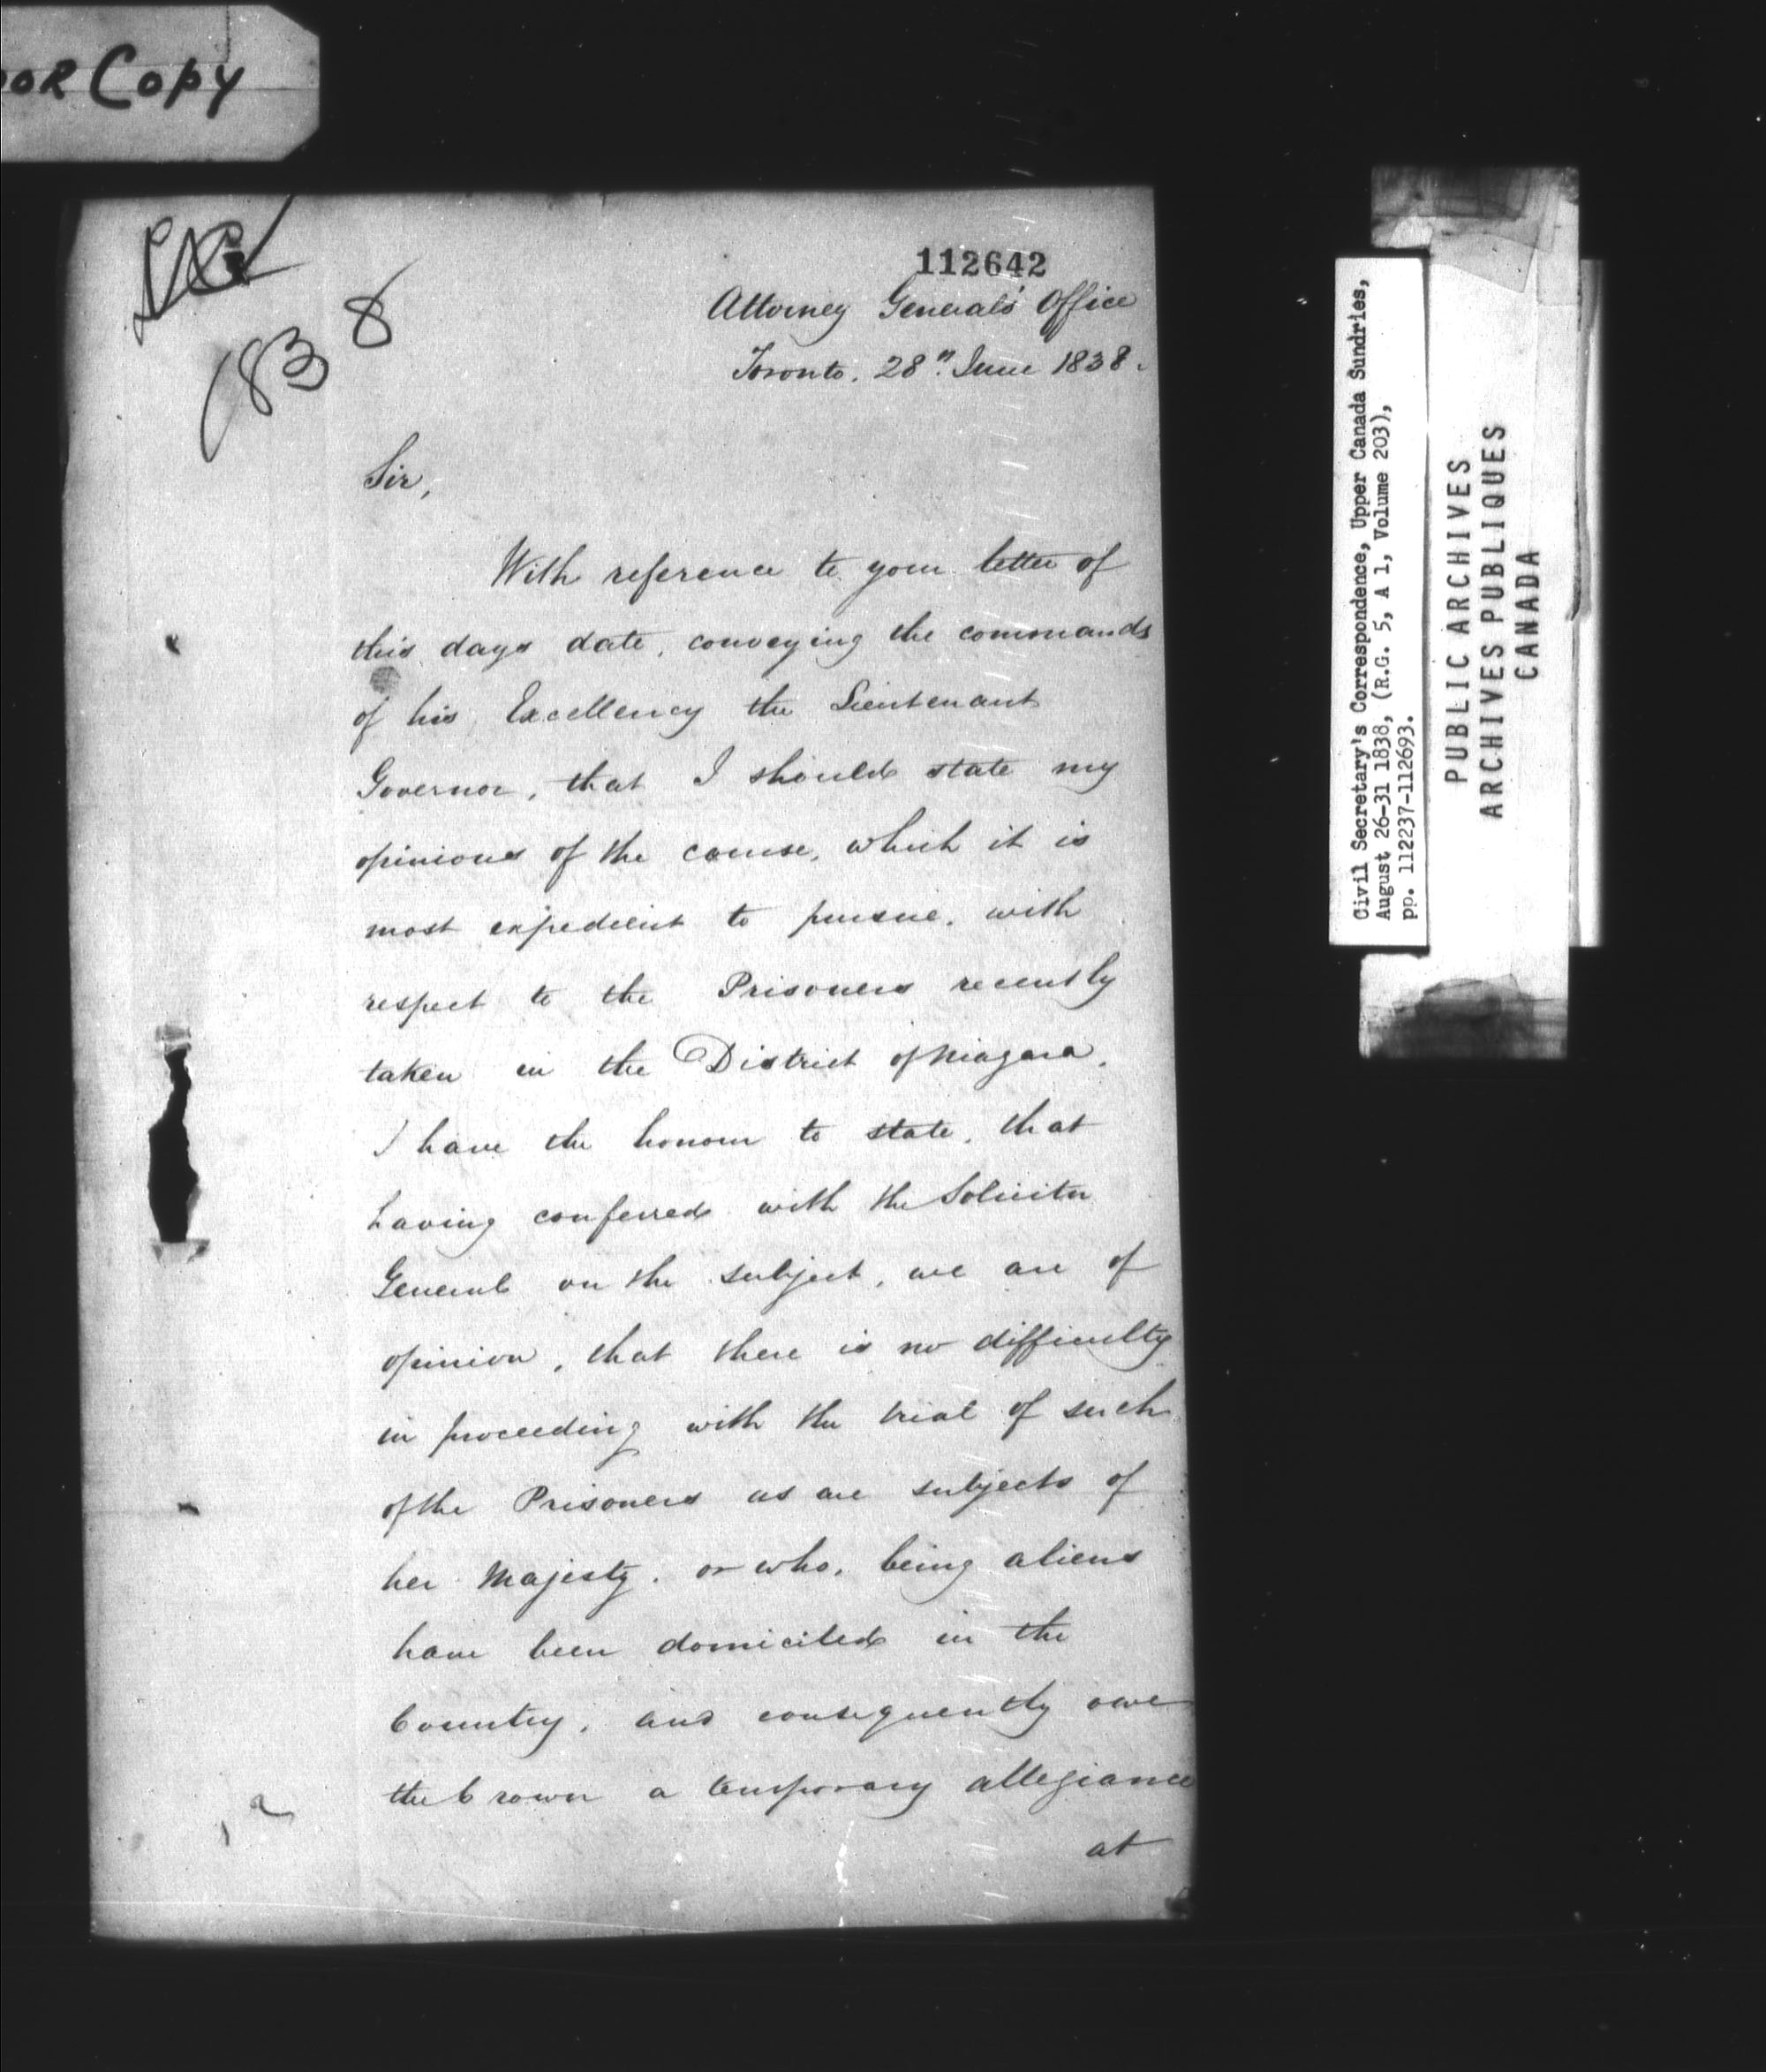 Copy
112642
Attorney General's Office
Toronto. 28th. June 1838.
1838
Sir,
With reference to your letter of
this days date, conveying the commands
of his Excellency the Lieutenant
Governor, that I should state my
opinions of the course, which it is
most expedient to pursue, with
respect to the Prisoners recently
taken in the District of Niagara,
I have the honour to state, that
having conferred with the Solicitor
General on the subject, we are of
opinion, that there is no difficulty
in proceeding with the trial of such
of the Prisoners as are subjects of
her Majesty, or who, being aliens
have been domiciled in the
Country, and consequently owe
the Crown a temporary allegiance
at
Civil Secretary's Correspondence, Upper Canada Sundries,
August 26-31 1838, (R.G. 5, A 1, Volume 203),
pp. 112237-112693.
PUBLIC ARCHIVES
ARCHIVES PUBLIQUES
CANADA